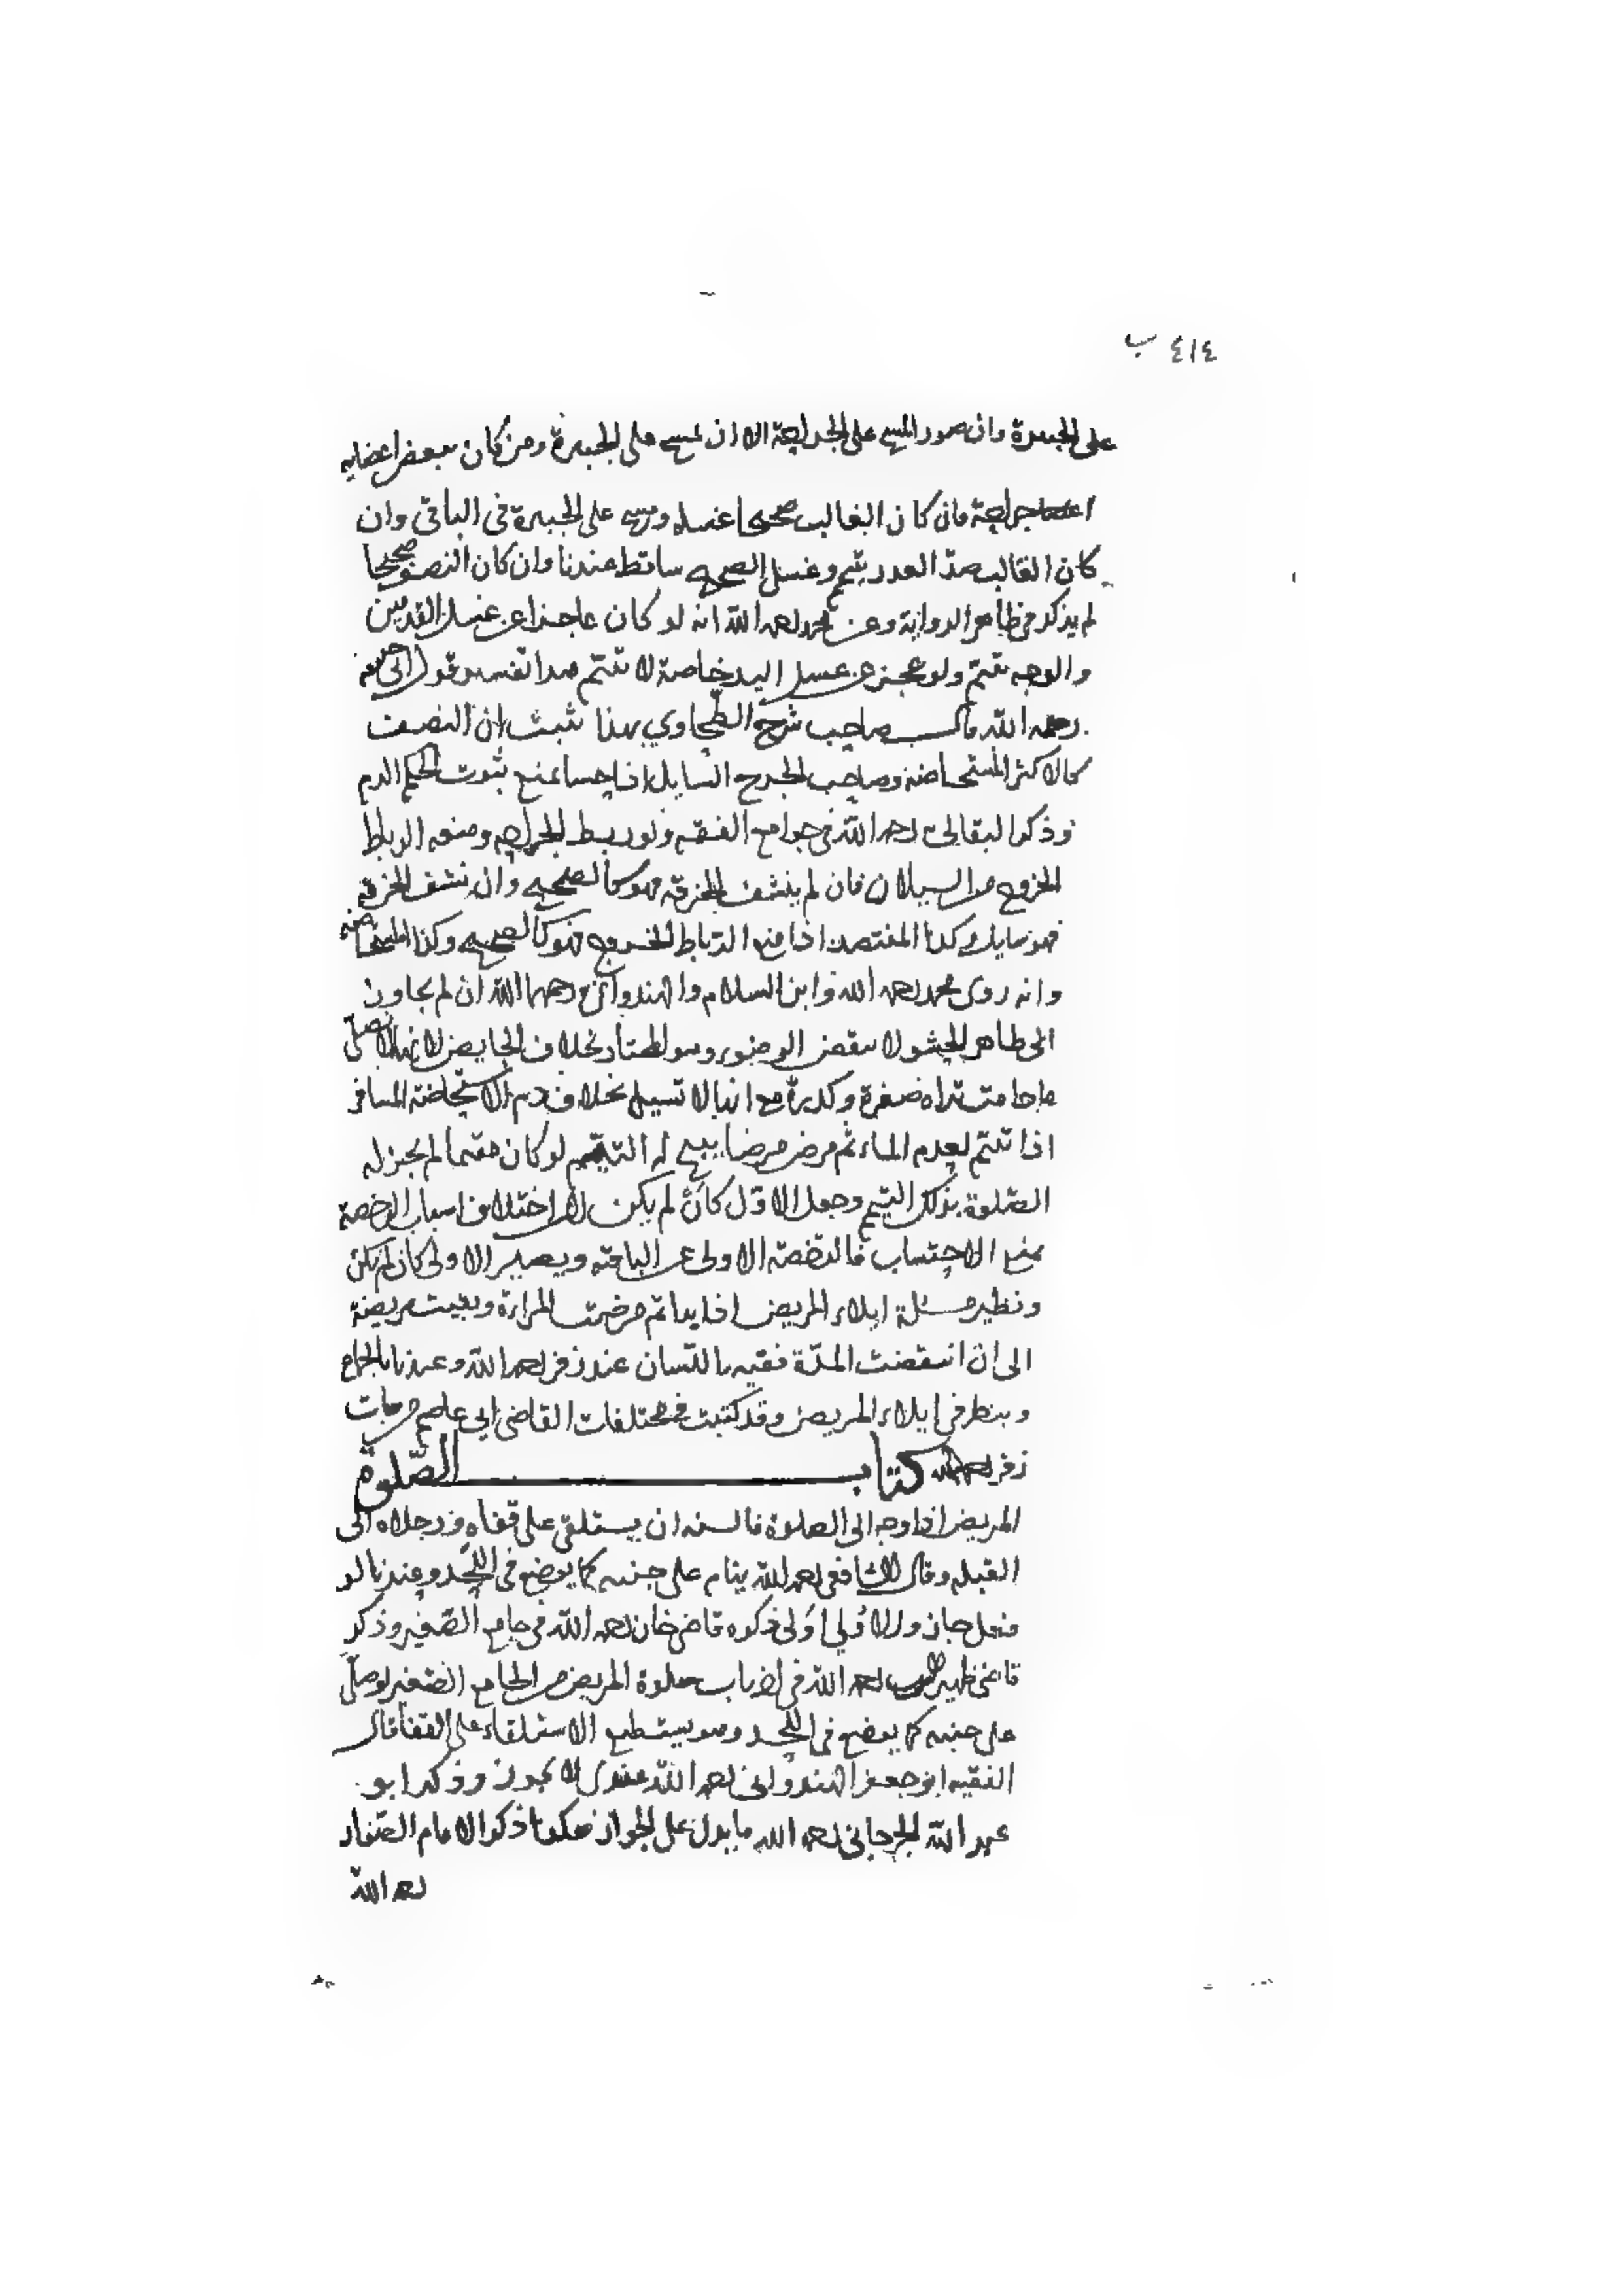 ٤١٤ ب
على الجبيرة وان المسح على الجراحة الا ان يمسح على الجبيرة ومن كان ببعض اعضايه
جراحة فان كان الغالب صحيحا غسله ومسح على الجبيرة في الباقي وان
كان الغالب هذا العذر يتيمم وغسل الصحيح ساقط عندنا وان كان النصف صحيحا
لم يذكر في ظاهر الرواية وعن محمد رحمه الله انه لو كان عاجزا عن غسل القدمين
والوجه تيمم ولو عجز عن غسل اليد خاصة لا تيمم هذا تفسير قول ابي حنيفة
رحمه الله قال صاحب شرح الطحاوي بهذا ثبت ان النصف
كالاكثر المستحاضة وصاحب الجرح السايل اذا يمنع ثبوت الحكم الدم
وذكر البقالي رحمه الله في جوامع الفقه ولو ربط الجراحة ومنعه الرباط
الخروج من السيلان فان لم ينشف الخرقة فهو كالصحيح وان نشف الخرقة
فهو سايل وكذا المفتصد اذا منع الرباط الخروج فهو كالصحيح وكذا المستحاضة
وانه روى محمد رحمه الله وابن السلام والهندواني رحمهما الله ان لم يجاوز
الى ظاهر الحشو لا ينقض الوضوء وهو المختار بخلاف الحايض لانها لا تصلي
ما دامت تراه صفرة وكدرة مع انها لا تسيل بخلاف دم الاستحاضة المسافر
اذا تيمم لعدم الماء ثم مرض مرضا يبيح له التيمم لو كان مقيما لم يجز له
الصلوة بذلك التيمم وجعل الاول كان لم يكن لان اختلاف اسباب الرخصة
يمنع الاحتساب بالرخصة الاولى عن الباقية ويصير الاولى كان لم يكن
ونظير مسئلة ايلاء المريض اذا بدا ثم مرضت المراءة وبقيت مريضة
الى ان انقضت المدة ففيه باللسان عند زفر رحمه الله وعندنا بالجماع
وينظر في ايلاء المريض وقد كتبت في مختلفات القاضي ابي عاصم من جانب
زفر رحمه الله كتاب الصلوة
المريض اذا وجه الى الصلوة فالسنة ان يستلقى على قفاه ورجلاه الى
القبلة وقال الشافعي رحمه الله ينام على جنبه كما يوضع في اللحد وعندنا لو
فعل جاز والاولى اولى ذكره قاضي خان رحمه الله في جامع الصغير وذكر
قاضي ظهير الدين رحمه الله في باب صلوة المريض من الجامع الصغير لو صلى
على جنبه كما يوضع في اللحد وهو يستطيع الاستلقاء على القفا قال
الفقيه ابو جعفر الهندواني رحمه الله عندي لا يجوز وذكر ابو
عبد الله الجرجاني رحمه الله ما يدل على الجواز هكذا ذكر الامام الصفار
رحمه الله